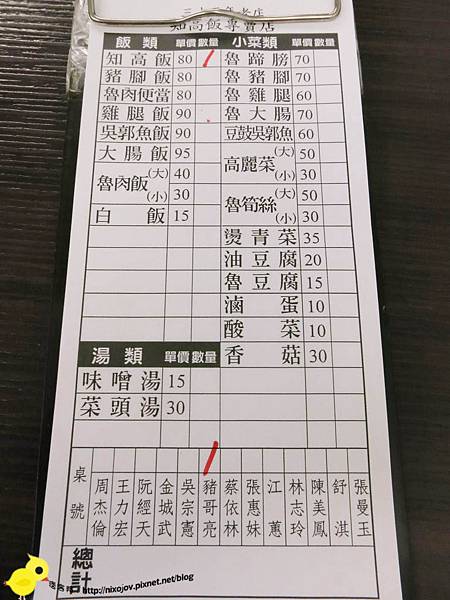 三十一年老店
知高飯專賣店
飯類 單價 數量
知高飯 80
豬腳飯 80
魯肉便當 80
雞腿飯 90
吳郭魚飯 90
大腸飯 95
魯肉飯 (大) 40
(小) 30
白飯 15
湯類 單價 數量
味噌湯 15
菜頭湯 30
小菜類 單價 數量
魯蹄膀 70
魯豬腳 70
魯雞腿 60
魯大腸 70
豆鼓吳郭魚 60
高麗菜 (大) 50
(小) 30
魯筍絲 (大) 50
(小) 30
燙青菜 35
油豆腐 20
魯豆腐 15
滷蛋 10
酸菜 10
香菇 30
桌號
周杰倫
王力宏
阮經天
金城武
吳宗憲
豬哥亮
蔡依林
張惠妹
江蕙
林志玲
陳美鳳
舒淇
張曼玉
總計
http://nixojov.pixnet.net/blog